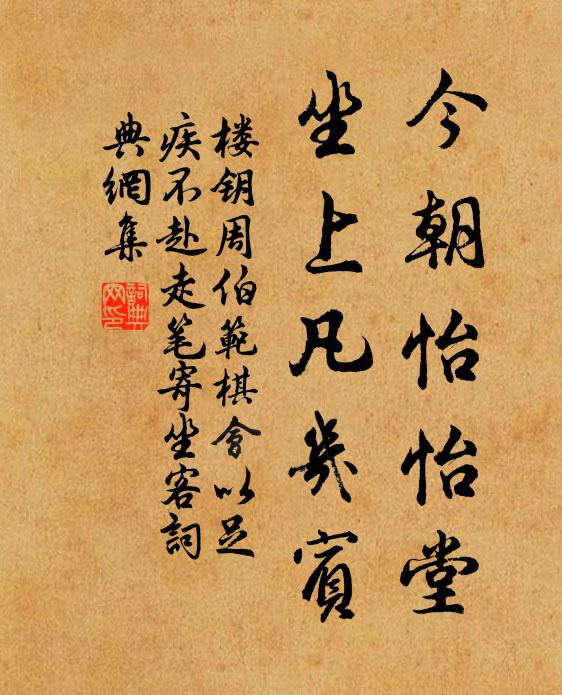 今朝怡怡堂
坐上凡几宾
楼钥周伯範棋會以足
疾不赴走笔寄坐客詞
典網集
詞典网印